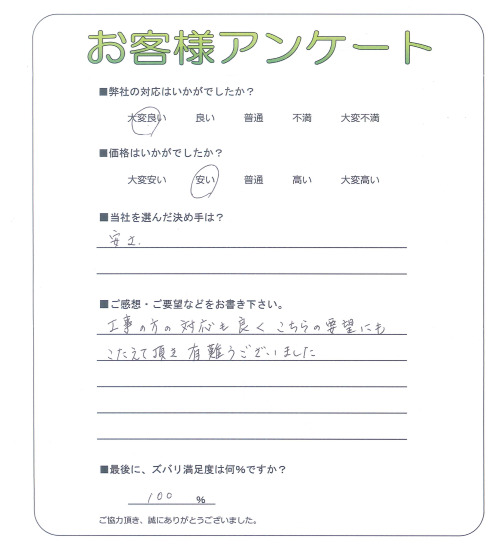 お客様アンケート
■弊社の対応はいかがでしたか？
大変良い 良い 普通 不満 大変不満
■価格はいかがでしたか？
大変安い 安い 普通 高い 大変高い
■当社を選んだ決め手は？
安さ.
■ご感想・ご要望などをお書き下さい。
工事の方の対応も良くこちらの要望にも
こたえて頂き有難うございました
■最後に、ズバリ満足度は何%ですか？
100 %
ご協力頂き、誠にありがとうございました。